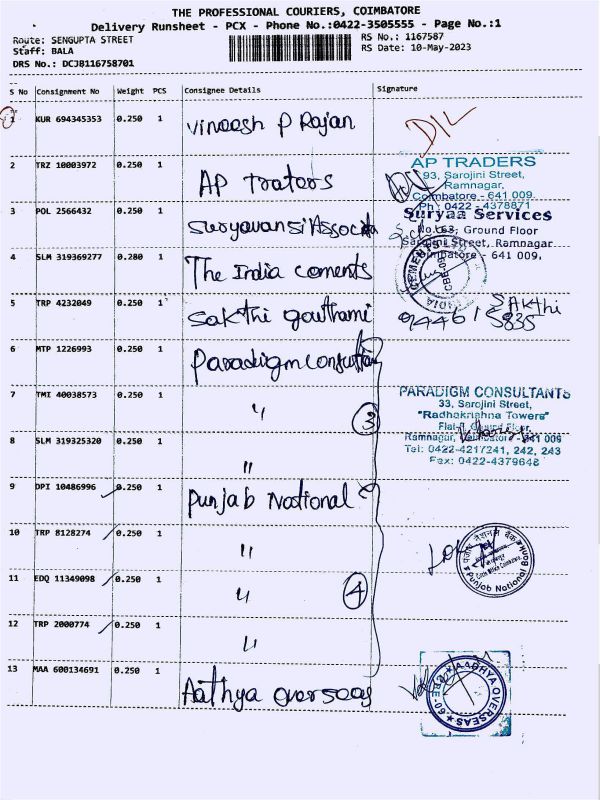 THE PROFESSIONAL COURIERS, COIMBATORE
Delivery Runsheet - PCX - Phone No.:0422-3505555 - Page No.:1
Route: SENGUPTA STREET
Staff: BALA
DRS No.: DCJB116758701
RS No.: 1167587
RS Date: 10-May-2023
S No Consignment No Weight PCS Consignee Details Signature
1 KUR 694345353 0.250 1 Vineesh P Rajan D/L
2 TRZ 10003972 0.250 1 AP Traters
AP TRADERS
93, Sarojini Street,
Ramnagar,
Coimbatore - 641 009.
Ph: 0422 - 4378871
3 POL 2566432 0.250 1 Suryavansi Associ
Suryaa Services
No.63, Ground Floor
Sarojini Street, Ramnagar
Coimbatore - 641 009.
4 SLM 319369277 0.280 1 The India coments
INDIA CEMENTS
CBE-09
5 TRP 4232049 0.250 1 Sakthi gowthami
SAKThi
94461 5835
6 MTP 1226993 0.250 1 Paradigm
7 TMI 40038573 0.250 1 〃 3
PARADIGM CONSULTANTS
33, Sarojini Street,
"Radhakrishna Towers"
Ground Floor,
Ramnagar, Coimbatore - 641 009
Tel: 0422-4217241, 242, 243
Fax: 0422-4379648
8 SLM 319325320 0.250 1 〃
9 DPI 10486996 0.250 1 Punjab National
10 TRP 8128274 0.250 1 〃
पंजाब नैशनल बैंक
Punjab National Bank
11 EDQ 11349098 0.250 1 〃 4
12 TRP 2000774 0.250 1 〃
13 MAA 600134691 0.250 1 Aathya overseas
AADHYA OVERSEAS
CBE-09